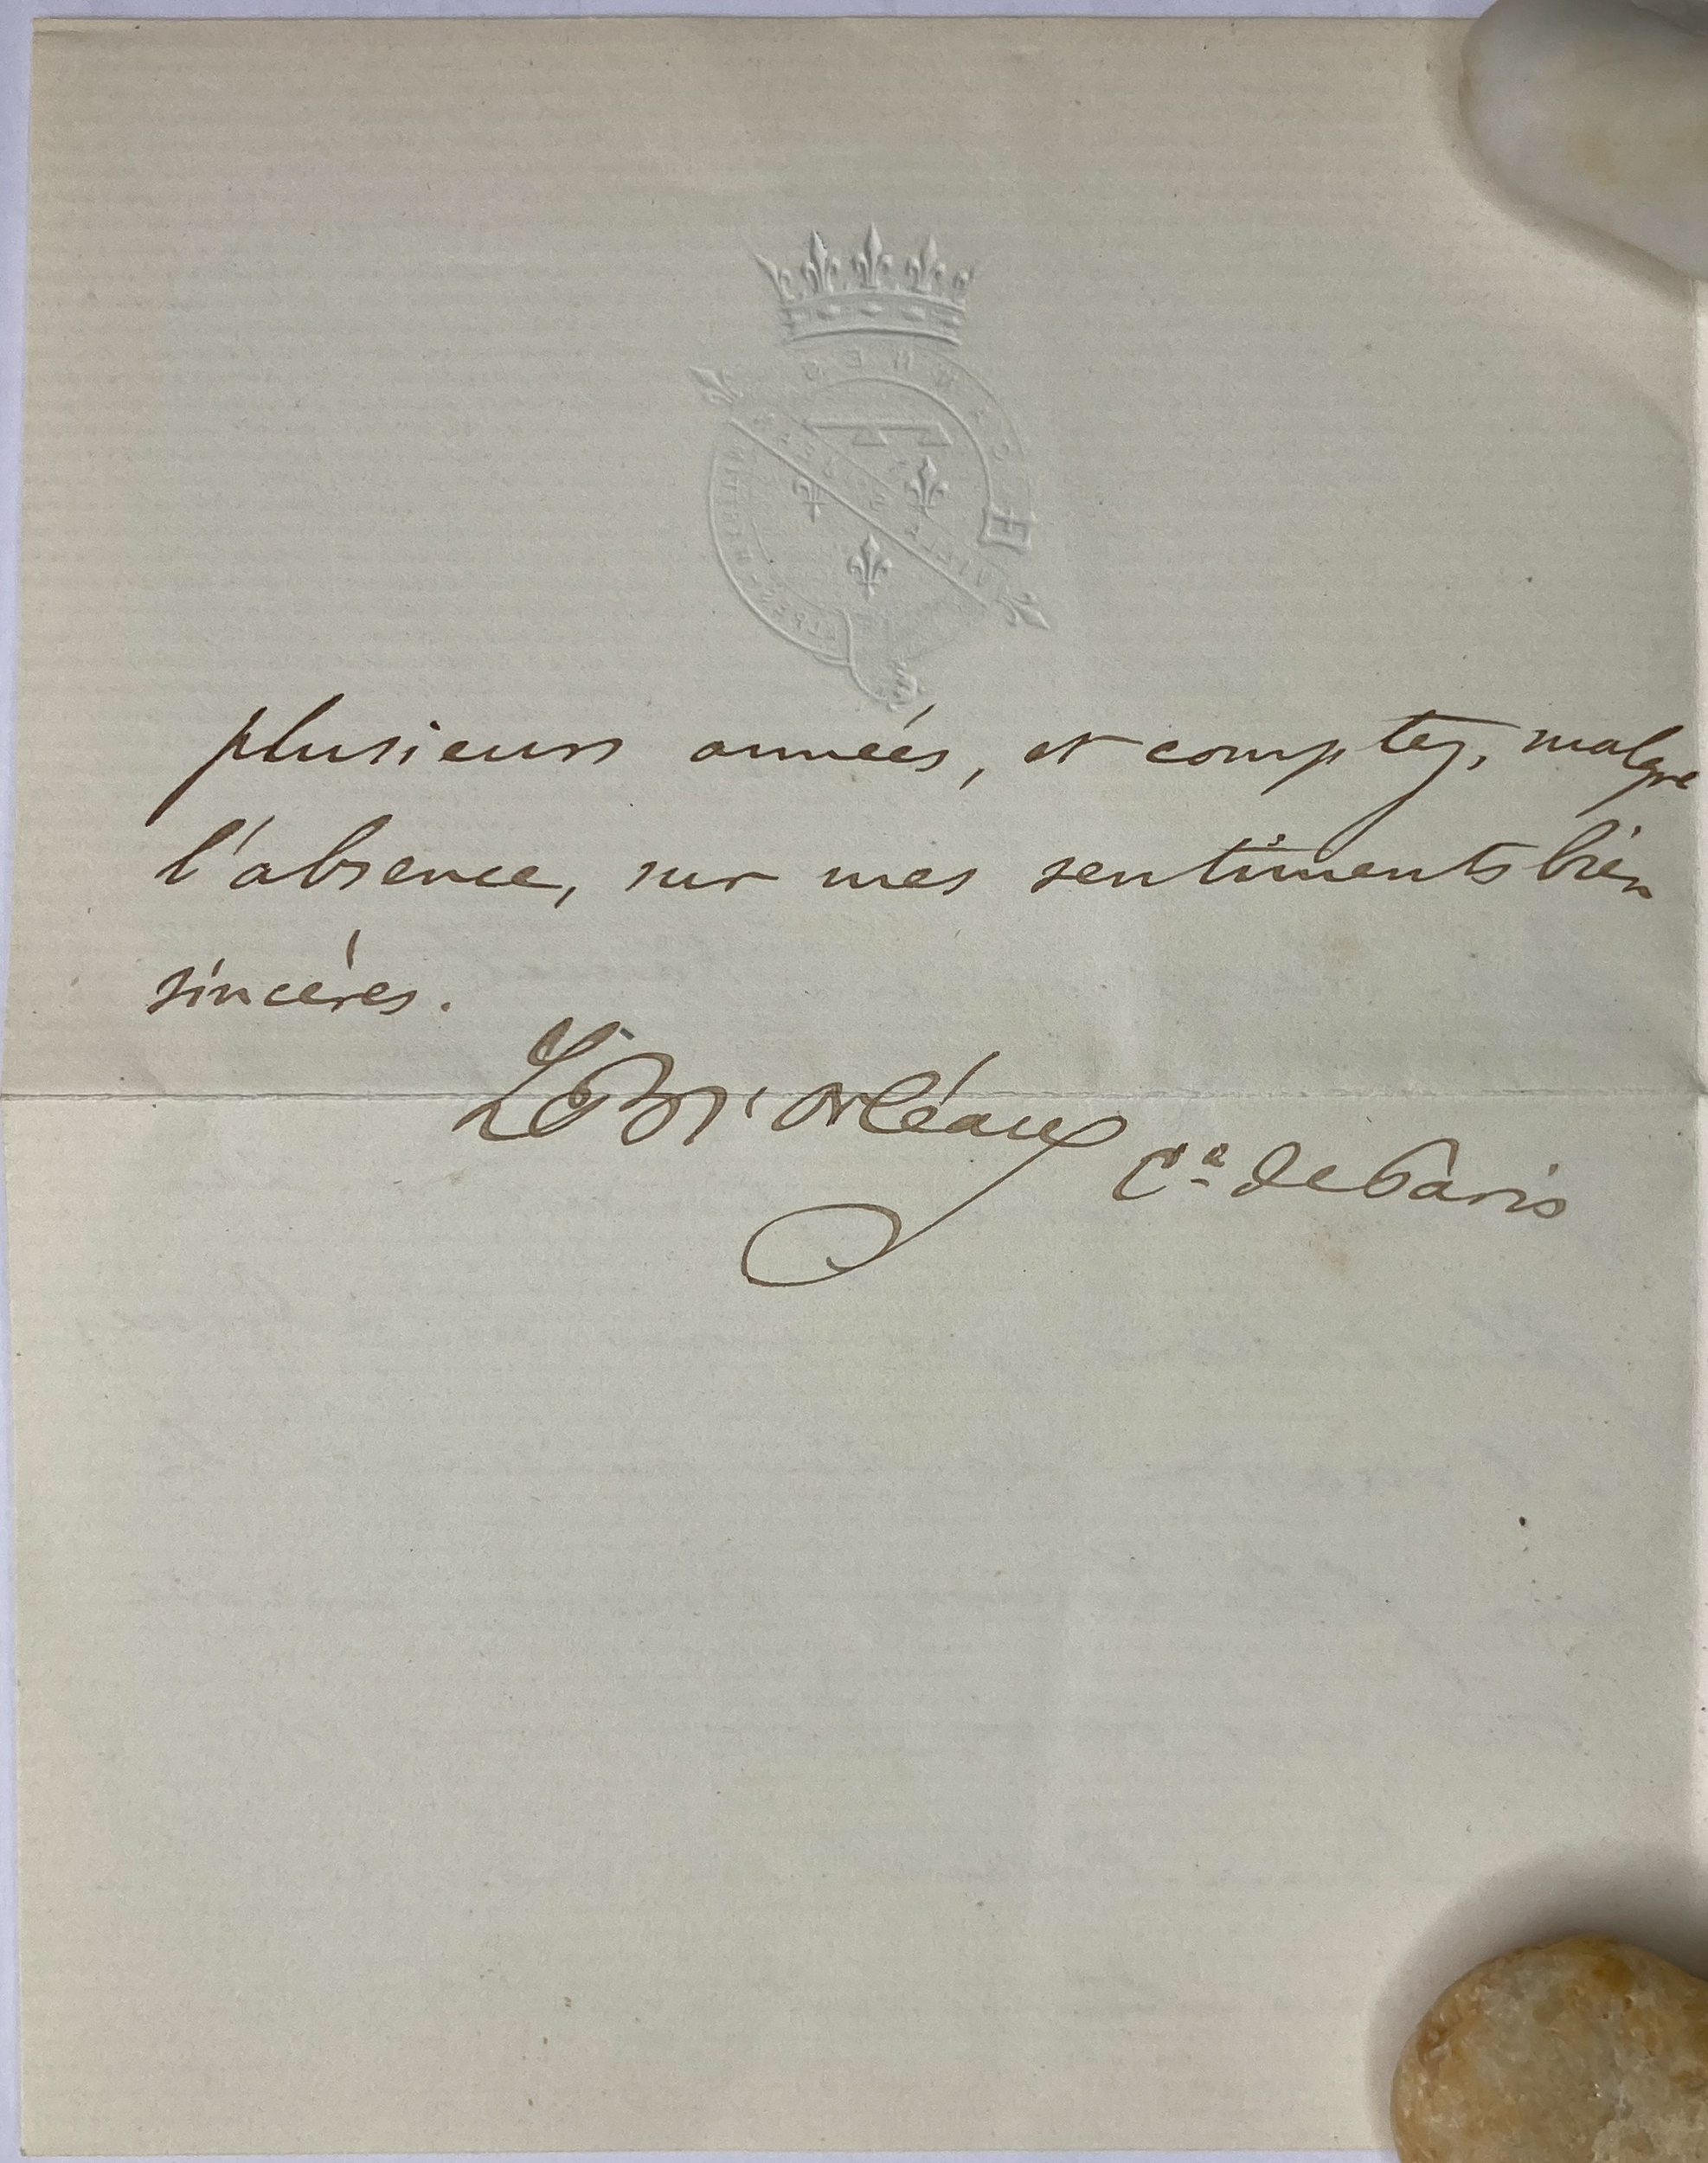 plusieurs années, et comptez, malgré
l'absence, sur mes sentiments bien
sincères.
d'Orléans
Cte de Paris